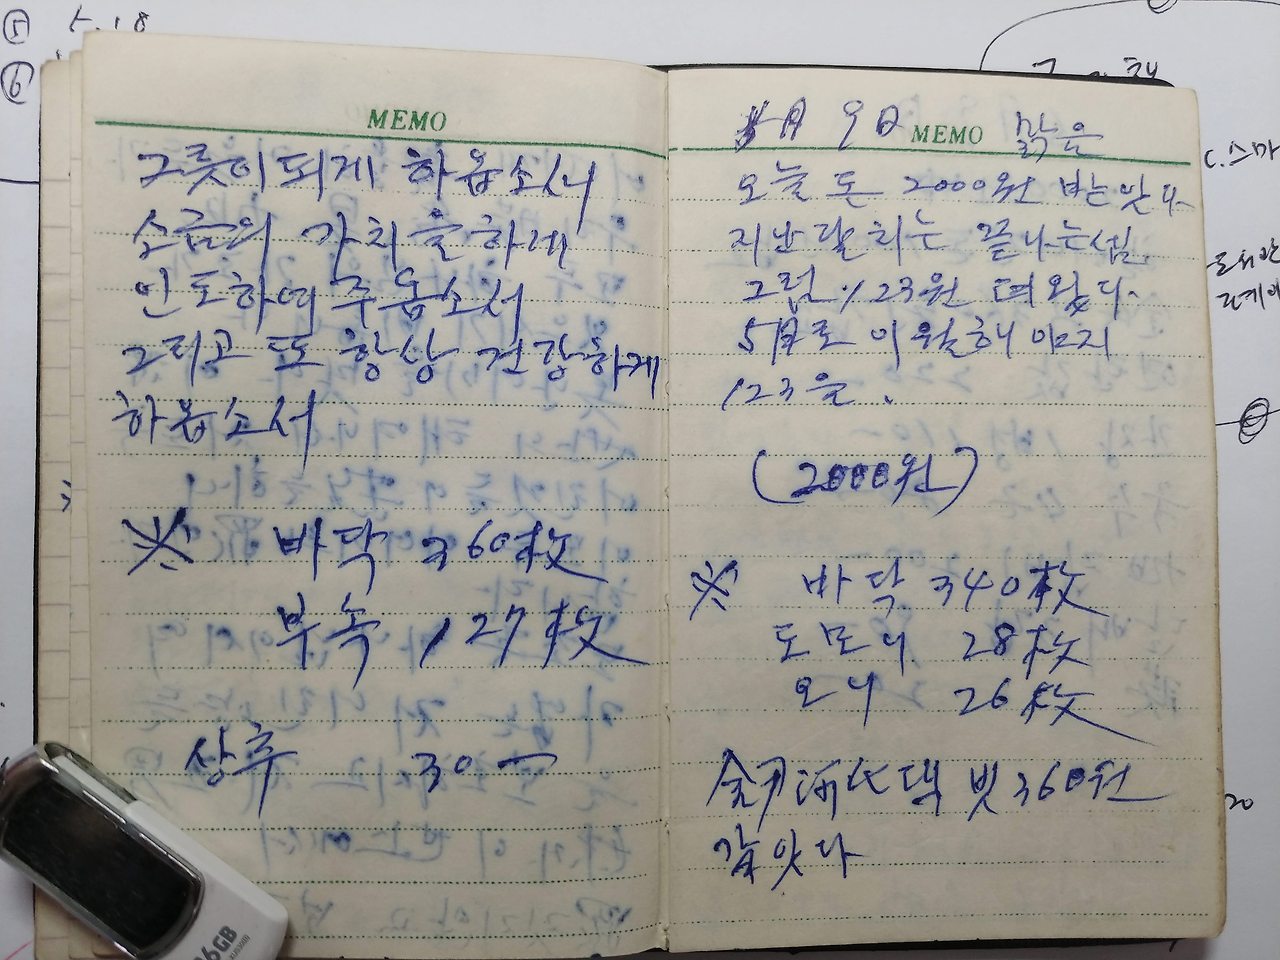 ⑤ 5.18
⑥
MEMO
그릇이 되게 하옵소서
소금의 가치를 하게
인도하여 주옵소서
그리고 또 항상 건강하게
하옵소서
※ 바닥 260枚
부속 127枚
상추 30-
6GB
5月 9日 MEMO 맑음
오늘 돈 2000원 받았다.
지난달 치는 끝나는 셈.
그럼 123원 떠왔다.
5月로 이월해야지
123을.
(2000원)
※ 바닥 340枚
도모니 28枚
오니 26枚
댁 빗 360원
갚앗다
C. 스마
20